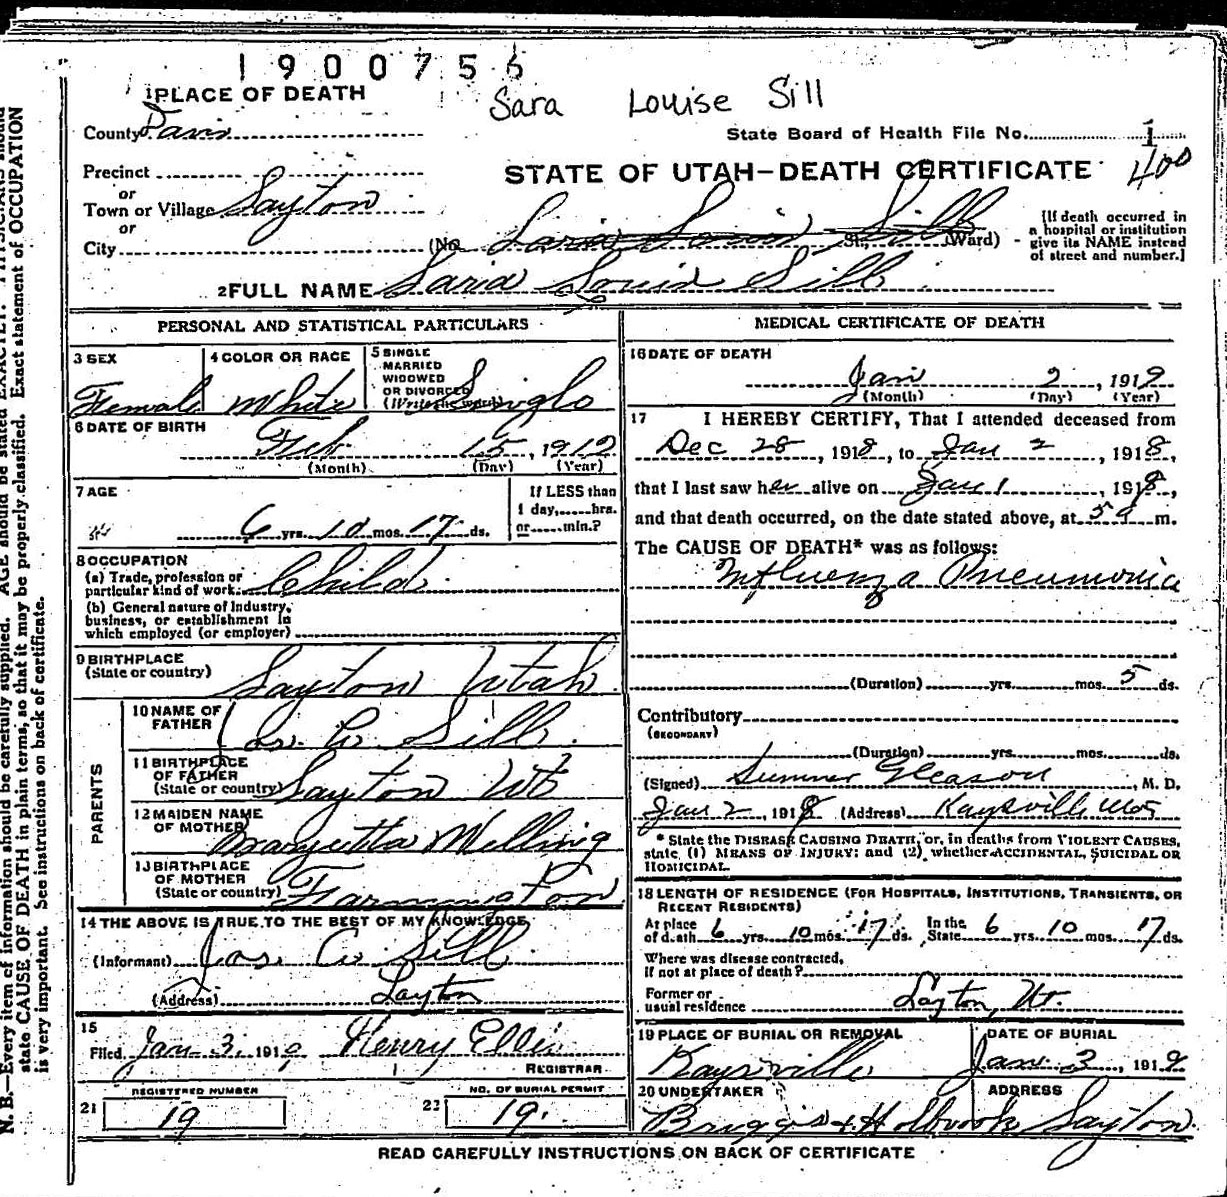 1900756
Sara Louise Sill
1 PLACE OF DEATH
County Davis
State Board of Health File No. 1
400
Precinct
or
Town or Village Layton
or
City
STATE OF UTAH—DEATH CERTIFICATE
(No. St., Ward)
[If death occurred in
a hospital or institution
give its NAME instead
of street and number.]
2 FULL NAME Saria Louis Sill
PERSONAL AND STATISTICAL PARTICULARS
3 SEX
Female
4 COLOR OR RACE
White
5 SINGLE
MARRIED
WIDOWED
OR DIVORCED
(Write the word)
Single
6 DATE OF BIRTH
Feb 15, 1912
(Month) (Day) (Year)
7 AGE
6 yrs. 10 mos. 17 ds.
If LESS than
1 day, hrs.
or min.?
8 OCCUPATION
(a) Trade, profession or
particular kind of work. Child
(b) General nature of Industry,
business, or establishment in
which employed (or employer)
9 BIRTHPLACE
(State or country)
Layton Utah
PARENTS
10 NAME OF
FATHER
Jas. C Sill
11 BIRTHPLACE
OF FATHER
(State or country)
Layton Ut
12 MAIDEN NAME
OF MOTHER
Margretta Welling
13 BIRTHPLACE
OF MOTHER
(State or country)
Farmington
14 THE ABOVE IS TRUE TO THE BEST OF MY KNOWLEDGE
(Informant) Jas. C. Sill
(Address) Layton
15
Filed Jan 3, 1919 Henry Ellis
REGISTRAR
REGISTERED NUMBER
21 19
NO. OF BURIAL PERMIT
22 19.
MEDICAL CERTIFICATE OF DEATH
16 DATE OF DEATH
Jan 2, 1919
(Month) (Day) (Year)
17 I HEREBY CERTIFY, That I attended deceased from
Dec 28, 1918, to Jan 2, 1918,
that I last saw her alive on Jan 1, 1919,
and that death occurred, on the date stated above, at 5 a m.
The CAUSE OF DEATH* was as follows:
Influenza Pneumonia
(Duration) yrs. mos. 5 ds.
Contributory
(SECONDARY)
(Duration) yrs. mos. ds.
(Signed) Sumner Gleason, M. D.
Jan 2, 1919 (Address) Kaysville
* State the DISEASE CAUSING DEATH, or, in deaths from VIOLENT CAUSES,
state (1) MEANS OF INJURY; and (2) whether ACCIDENTAL, SUICIDAL OR
HOMICIDAL.
18 LENGTH OF RESIDENCE (FOR HOSPITALS, INSTITUTIONS, TRANSIENTS, OR
RECENT RESIDENTS)
At place
of death 6 yrs. 10 mos. 17 ds. In the
State 6 yrs. 10 mos. 17 ds.
Where was disease contracted,
if not at place of death?
Former or
usual residence Layton, Ut.
19 PLACE OF BURIAL OR REMOVAL
Kaysville
DATE OF BURIAL
Jan 3, 1919
20 UNDERTAKER
Briggs & Holbrook
ADDRESS
Layton
READ CAREFULLY INSTRUCTIONS ON BACK OF CERTIFICATE
N. B.—Every item of information should be carefully supplied. AGE should be stated EXACTLY. PHYSICIANS should
state CAUSE OF DEATH in plain terms, so that it may be properly classified. Exact statement of OCCUPATION
is very important. See instructions on back of certificate.